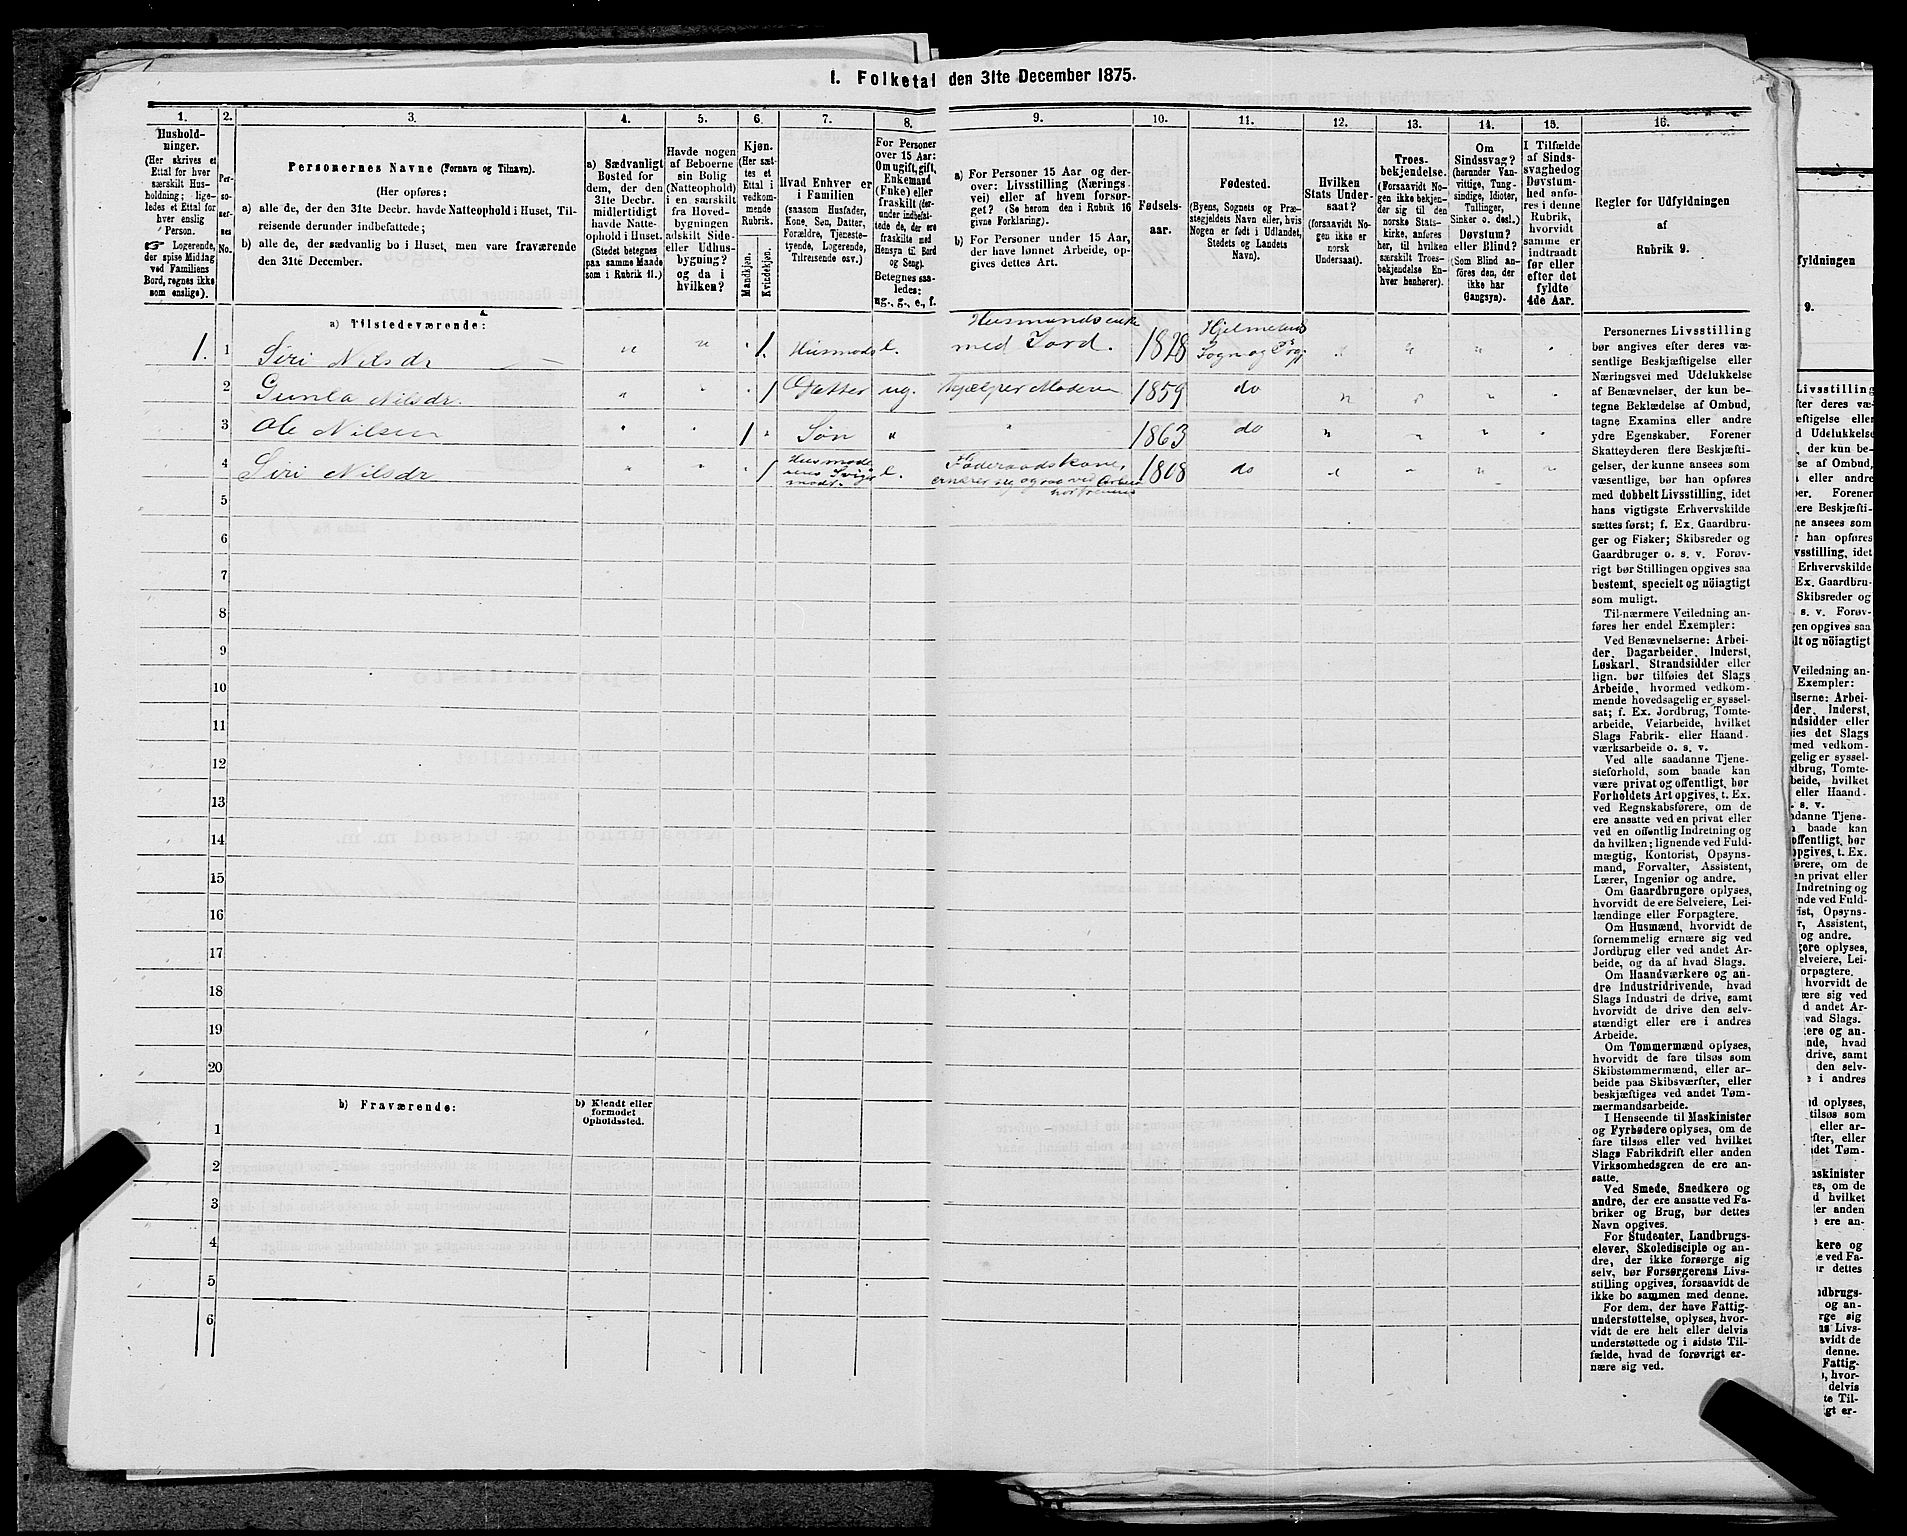 1. Folketal den 31te December 1875.
1. 2. 3. 4. 5. 6. 7. 8. 9. 10. 11. 12. 13. 14. 15. 16.
Hushold-
ninger.
(Her skrives et
Ettal for hver
særskilt Hus-
holdning; lige-
ledes et Ettal for
hver enslig
Person.
Logerende,
der spise Middag
ved Familiens
Bord, regnes ikke
som enslige).
Per-
so-
ner-
nes
No.
Personernes Navne (Fornavn og Tilnavn).
(Her opføres:
a) alle de, der den 31te Decbr. havde Natteophold i Huset, Til-
reisende derunder indbefattede;
b) alle de, der sædvanlig bo i Huset, men vare fraværende
den 31te December.
a) Sædvanligt
Bosted for
dem, der den
31te Decbr.
midlertidigt
havde Natte-
ophold i Huset.
(Stedet betegnes
paa samme Maade
som i Rubrik 11.)
Havde nogen
af Beboerne
sin Bolig
(Natteophold)
i en særskilt
fra Hoved-
bygningen
adskilt Side-
eller Udhus-
bygning?
og da i
hvilken?
Kjøn.
(Her sæt-
tes et
Ettal i
vedkom-
mende
Rubrik.
Mandkjøn.
Kvindekjøn.
Hvad Enhver er
i Familien
(saasom Husfader,
Kone, Søn, Datter,
Forældre, Tjeneste-
tyende, Logerende,
Tilreisende osv.)
For Personer
over 15 Aar:
Om ugift, gift,
Enkemand
(Enke) eller
fraskilt (der-
under indbefat-
tede de, der ere
fraskilte med
Hensyn til Bord
og Seng).
Betegnes saa-
ledes:
ug., g., e., f.
a) For Personer 15 Aar og der-
over: Livsstilling (Nærings-
vei) eller af hvem forsør-
get? (Se herom den i Rubrik 16
givne Forklaring).
b) For Personer under 15 Aar,
der have lønnet Arbeide, op-
gives dettes Art.
Fødsels-
aar.
Fødested.
(Byens, Sognets og Præ-
stegjeldets Navn eller, hvis
Nogen er født i Udlandet,
Stedets og Landets
Navn).
Hvilken
Stats Under-
saat?
(forsaavidt No-
gen ikke er
norsk
Undersaat).
Troes-
bekjendelse.
(Forsaavidt No-
gen ikke bekjen-
der sig til den
norske Stats-
kirke, anføres
her, til hvilken
særskilt Troes-
bekjendelse En-
hver henhører).
Om
Sindssvag?
(herunder Van-
vittige, Tung-
sindige, Idioter,
Tullinger,
Sinker o. desl.)
Døvstum?
eller Blind?
(Som Blind an-
føres den, der
ikke har
Gangsyn).
I Tilfælde
af Sinds-
svaghed og
Døvstum-
hed anfø-
res i denne
Rubrik,
hvorvidt
samme er
indtraadt
før eller
efter det
fyldte
4de Aar.
Regler for Udfyldningen
af
Rubrik 9.
a) Tilstedeværende:
1. 1 Siri Nilsdr 1. e. Husmandsenke med Jord. 1828 Hjelmelands Sogn og
2 Gunla Nilsdr. 1 Datter ug. Hjælper Moderen 1859 do
3 Ole Nilsen 1 Søn 1863 do
4 Siri Nilsdr 1 e. Føderaadskone, 1808 do
5
6
7
8
9
10
11
12
13
14
15
16
17
18
19
20
b) Fraværende:
b) Kjendt eller
formodet
Opholdssted.
1
2
3
4
5
6
Personernes Livsstilling
bør angives efter deres væ-
sentlige Beskjæftigelse eller
Næringsvei med Udelukkelse
af Benævnelser, der kun be-
tegne Beklædelse af Ombud,
tagne Examina eller andre
ydre Egenskaber. Forener
Skatteyderen flere Beskjæfti-
gelser, der kunne ansees som
væsentlige, bør han opføres
med dobbelt Livsstilling, idet
hans vigtigste Erhvervskilde
sættes først; f. Ex. Gaardbru-
ger og Fisker; Skibsreder og
Gaardbruger o. s. v. Forøv-
rigt bør Stillingen opgives saa
bestemt, specielt og nöiagtigt
som muligt.
Til nærmere Veiledning an-
føres her endel Exempler:
Ved Benævnelserne: Arbei-
der, Dagarbeider, Inderst,
Løskarl, Strandsidder eller
lign. bør tilføies det Slags
Arbeide, hvormed vedkom-
mende hovedsagelig er syssel-
sat; f. Ex. Jordbrug, Tomte-
arbeide, Veiarbeide, hvilket
Slags Fabrik- eller Haand-
værksarbeide o. s. v.
Ved alle saadanne Tjene-
steforhold, som baade kan
være privat og offentligt, bør
Forholdets Art opgives, t. Ex.
ved Regnskabsførere, om de
ere ansatte ved en privat eller
ved en offentlig Indretning og
da hvilken; lignende ved Fuld-
mægtig, Kontorist, Opsyns-
mand, Forvalter, Assistent,
Lærer, Ingeniør og andre.
Om Gaardbrugere oplyses,
hvorvidt de ere Selveiere, Lei-
lændinge eller Forpagtere.
Om Husmænd, hvorvidt de
fornemmelig ernære sig ved
Jordbrug eller ved andet Ar-
beide, og da af hvad Slags.
Om Haandværkere og an-
dre Industridrivende, hvad
Slags Industri de drive, samt
hvorvidt de drive den selv-
stændigt eller ere i andres
Arbeide.
Om Tømmermænd oplyses,
hvorvidt de fare tilsøs som
Skibstømmermænd, eller ar-
beide paa Skibsværfter, eller
beskjæftiges ved andet Tøm-
mermandsarbeide.
I Henseende til Maskinister
og Fyrbødere oplyses, om de
fare tilsøs eller ved hvilket
Slags Fabrikdrift eller anden
Virksomhedsgren de ere an-
satte.
Ved Smede, Snedkere og
andre, der ere ansatte ved Fa-
briker og Brug, bør dettes
Navn opgives.
For Studenter, Landbrugs-
elever, Skoledisciple og an-
dre, der ikke forsørge sig
selv, bør Forsørgerens Livs-
stilling opgives, forsaavidt de
ikke bo sammen med denne.
For dem, der have Fattig-
understøttelse, oplyses, hvor-
vidt de ere helt eller delvis
understøttede og i sidste Til-
fælde, hvad de forøvrigt er-
nære sig ved.